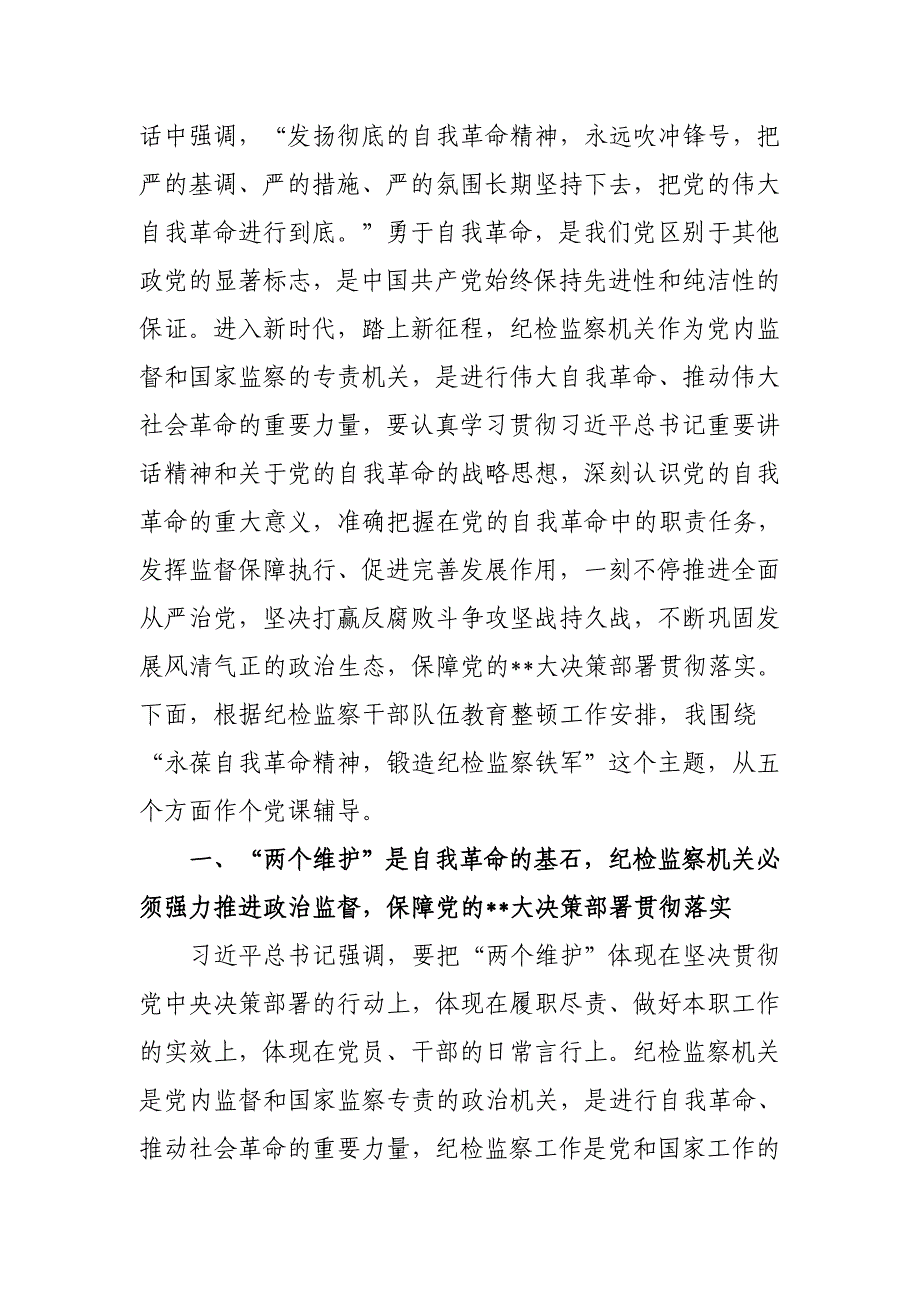 话中强调，“发扬彻底的自我革命精神，永远吹冲锋号，把
严的基调、严的措施、严的氛围长期坚持下去，把党的伟大
自我革命进行到底。”勇于自我革命，是我们党区别于其他
政党的显著标志，是中国共产党始终保持先进性和纯洁性的
保证。进入新时代，踏上新征程，纪检监察机关作为党内监
督和国家监察的专责机关，是进行伟大自我革命、推动伟大
社会革命的重要力量，要认真学习贯彻习近平总书记重要讲
话精神和关于党的自我革命的战略思想，深刻认识党的自我
革命的重大意义，准确把握在党的自我革命中的职责任务，
发挥监督保障执行、促进完善发展作用，一刻不停推进全面
从严治党，坚决打赢反腐败斗争攻坚战持久战，不断巩固发
展风清气正的政治生态，保障党的**大决策部署贯彻落实。
下面，根据纪检监察干部队伍教育整顿工作安排，我围绕
“永葆自我革命精神，锻造纪检监察铁军”这个主题，从五
个方面作个党课辅导。
一、“两个维护”是自我革命的基石，纪检监察机关必
须强力推进政治监督，保障党的**大决策部署贯彻落实
习近平总书记强调，要把“两个维护”体现在坚决贯彻
党中央决策部署的行动上，体现在履职尽责、做好本职工作
的实效上，体现在党员、干部的日常言行上。纪检监察机关
是党内监督和国家监察专责的政治机关，是进行自我革命、
推动社会革命的重要力量，纪检监察工作是党和国家工作的